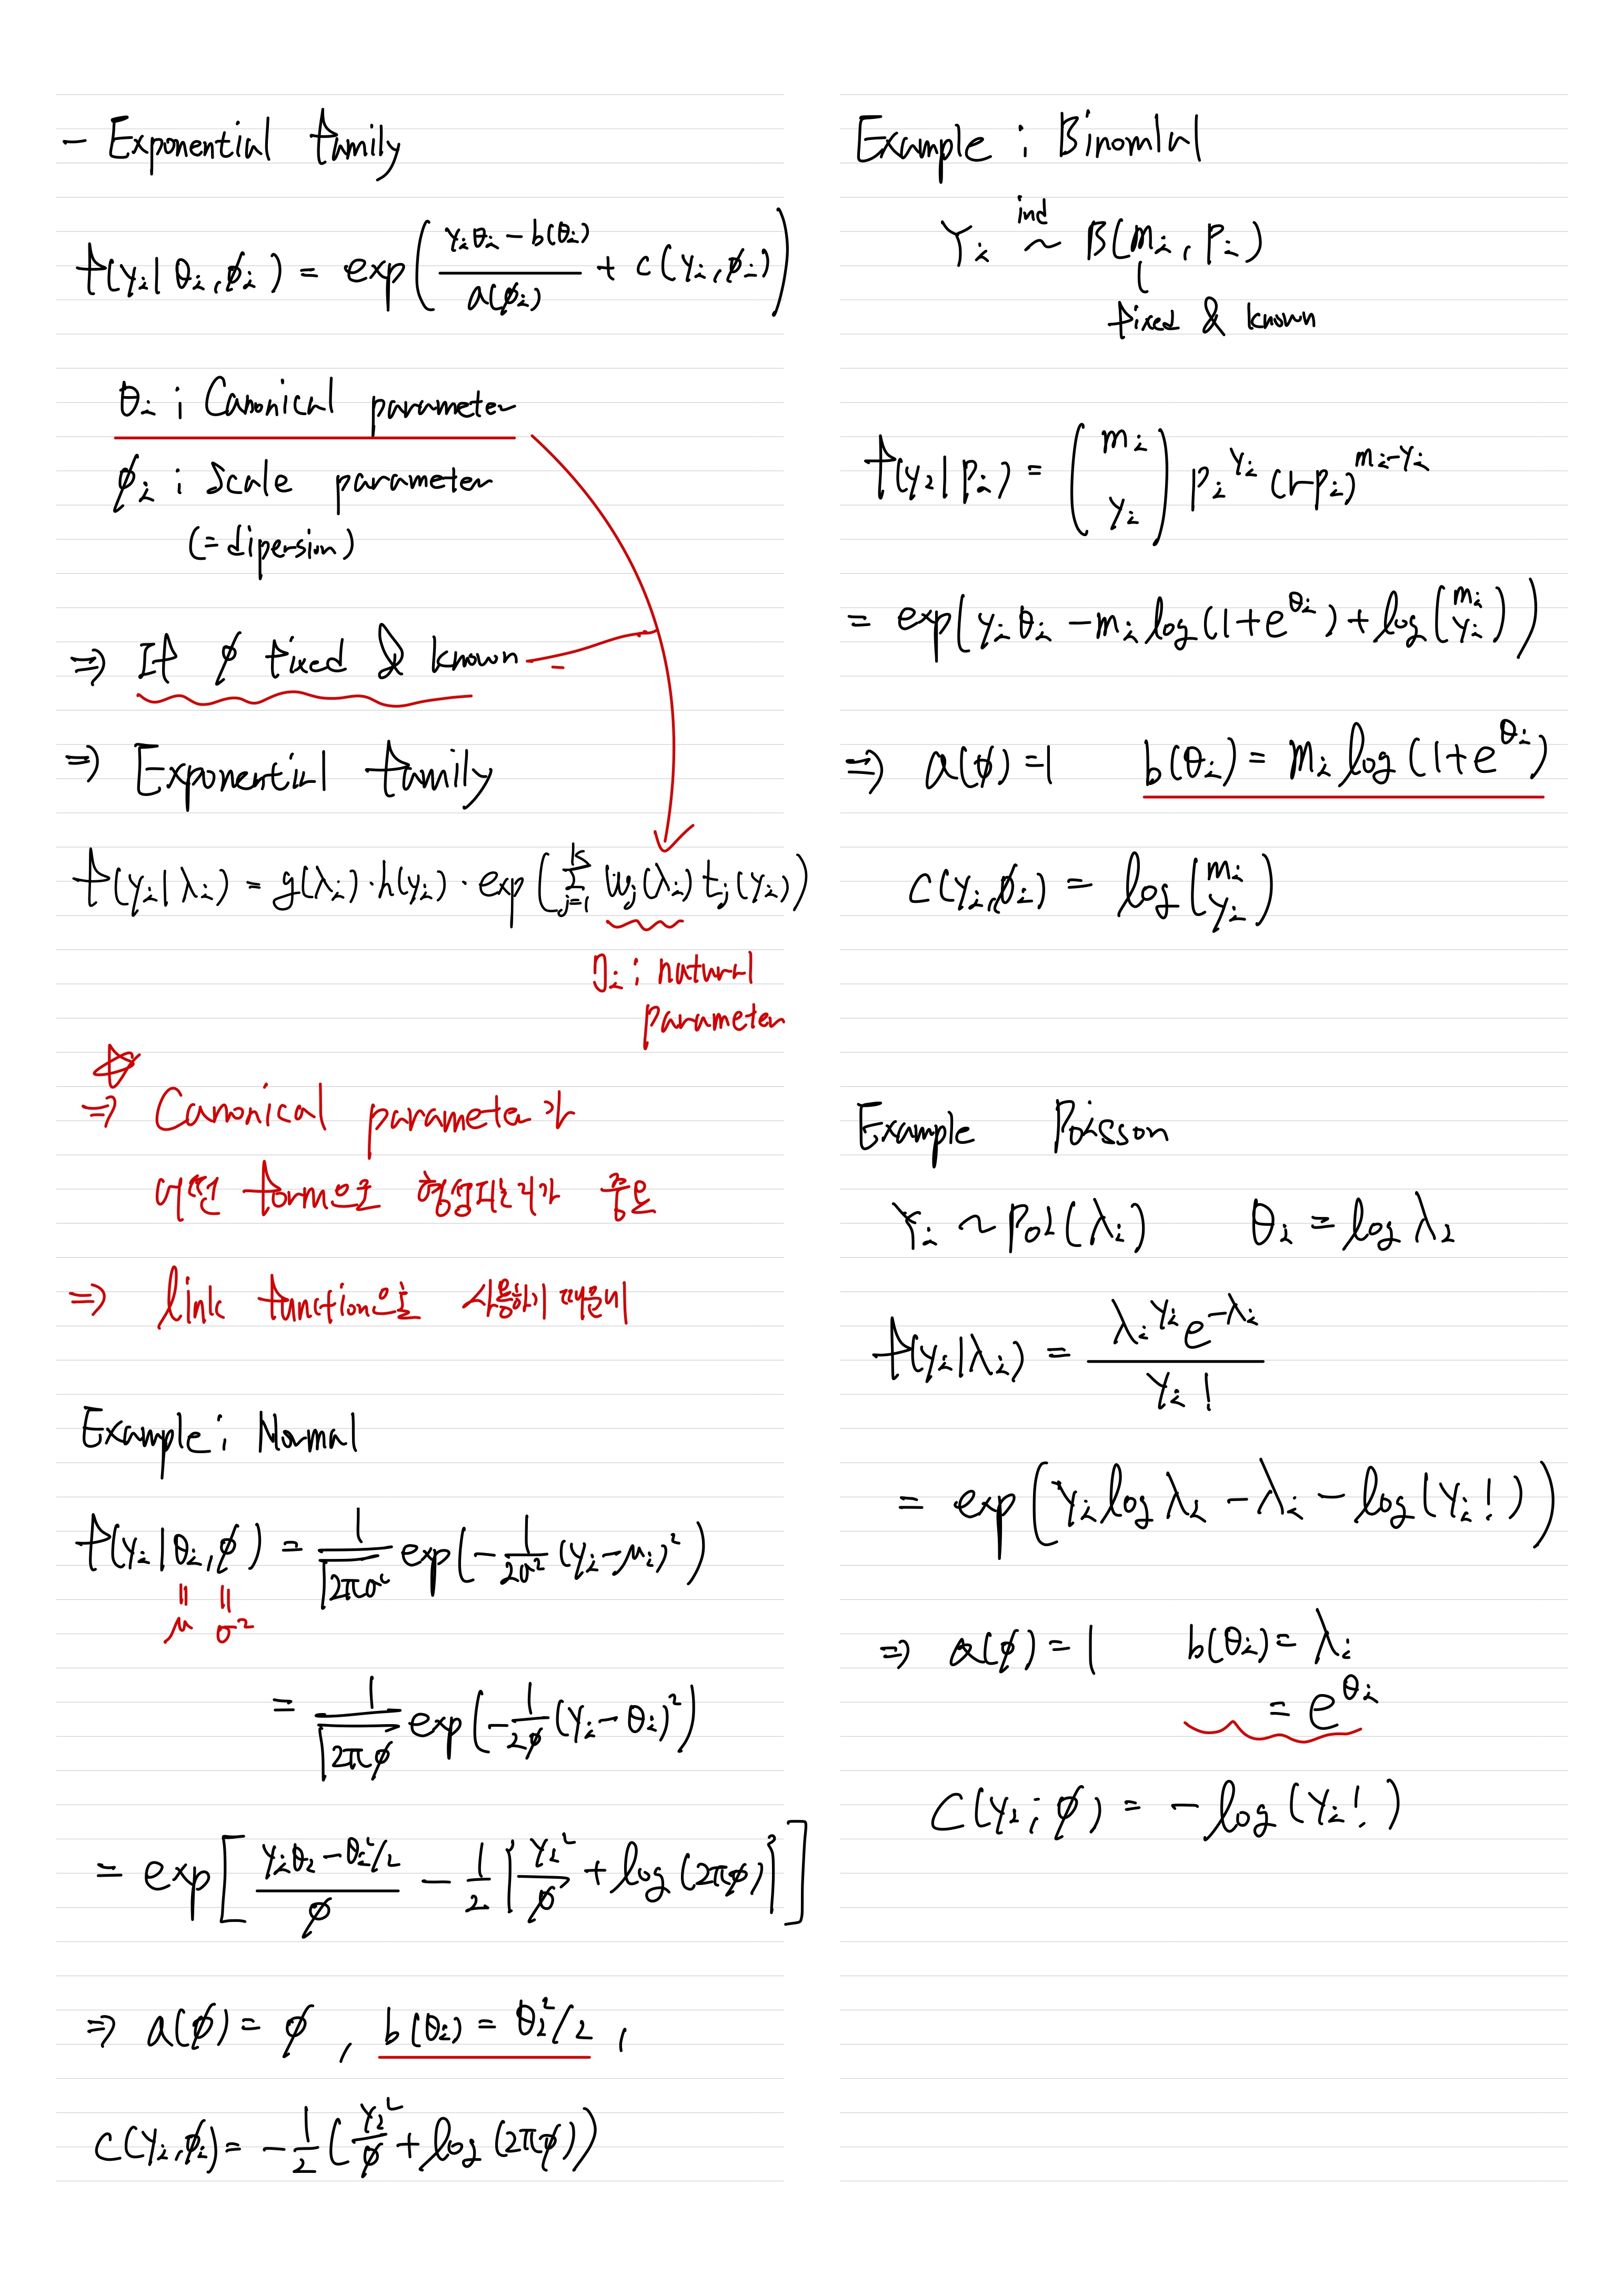 - Exponential family
f(yᵢ | θᵢ, ϕᵢ) = exp( (yᵢθᵢ - b(θᵢ)) / a(ϕᵢ) + c(yᵢ, ϕᵢ) )
θᵢ ; Canonical parameter
ϕᵢ ; Scale parameter
(= dipersion)
⇒ If ϕ fixed & known
⇒ Exponential family
f(yᵢ | λᵢ) = g(λᵢ) · h(yᵢ) · exp( Σ_{j=1}^{k} wⱼ(λᵢ) tⱼ(yᵢ) )
ηᵢ ; natural
parameter
☆
⇒ Canonical parameter가
어떤 form으로 형성되는지가 중요
⇒ link function으로 사용하기 때문에
Example ; Normal
f(yᵢ | θᵢ, ϕ) = 1/√(2πσ²) exp( - 1/(2σ²) (yᵢ - μᵢ)² )
= =
μ σ²
= 1/√(2πϕ) exp( - 1/(2ϕ) (yᵢ - θᵢ)² )
= exp[ (yᵢθᵢ - θᵢ²/2) / ϕ - 1/2 { yᵢ²/ϕ + log(2πϕ) } ]
⇒ a(ϕ) = ϕ , b(θᵢ) = θᵢ²/2 ,
c(yᵢ, ϕᵢ) = - 1/2 ( yᵢ²/ϕ + log(2πϕ) )
Example ; Binomial
Yᵢ ~ind B(mᵢ, pᵢ)
fixed & known
f(yᵢ | pᵢ) = (mᵢ yᵢ) pᵢ^{yᵢ} (1-pᵢ)^{mᵢ-yᵢ}
= exp( yᵢθᵢ - mᵢ log(1+e^{θᵢ}) + log(mᵢ yᵢ) )
⇒ a(ϕ) = 1 b(θᵢ) = mᵢ log(1+e^{θᵢ})
c(yᵢ, ϕᵢ) = log(mᵢ yᵢ)
Example Poisson
Yᵢ ~ Poi(λᵢ) θᵢ = log λᵢ
f(yᵢ | λᵢ) = λᵢ^{yᵢ} e^{-λᵢ} / yᵢ!
= exp( yᵢ log λᵢ - λᵢ - log(yᵢ!) )
⇒ a(ϕ) = 1 b(θᵢ) = λᵢ
= e^{θᵢ}
C(yᵢ ; ϕ) = - log(yᵢ!)